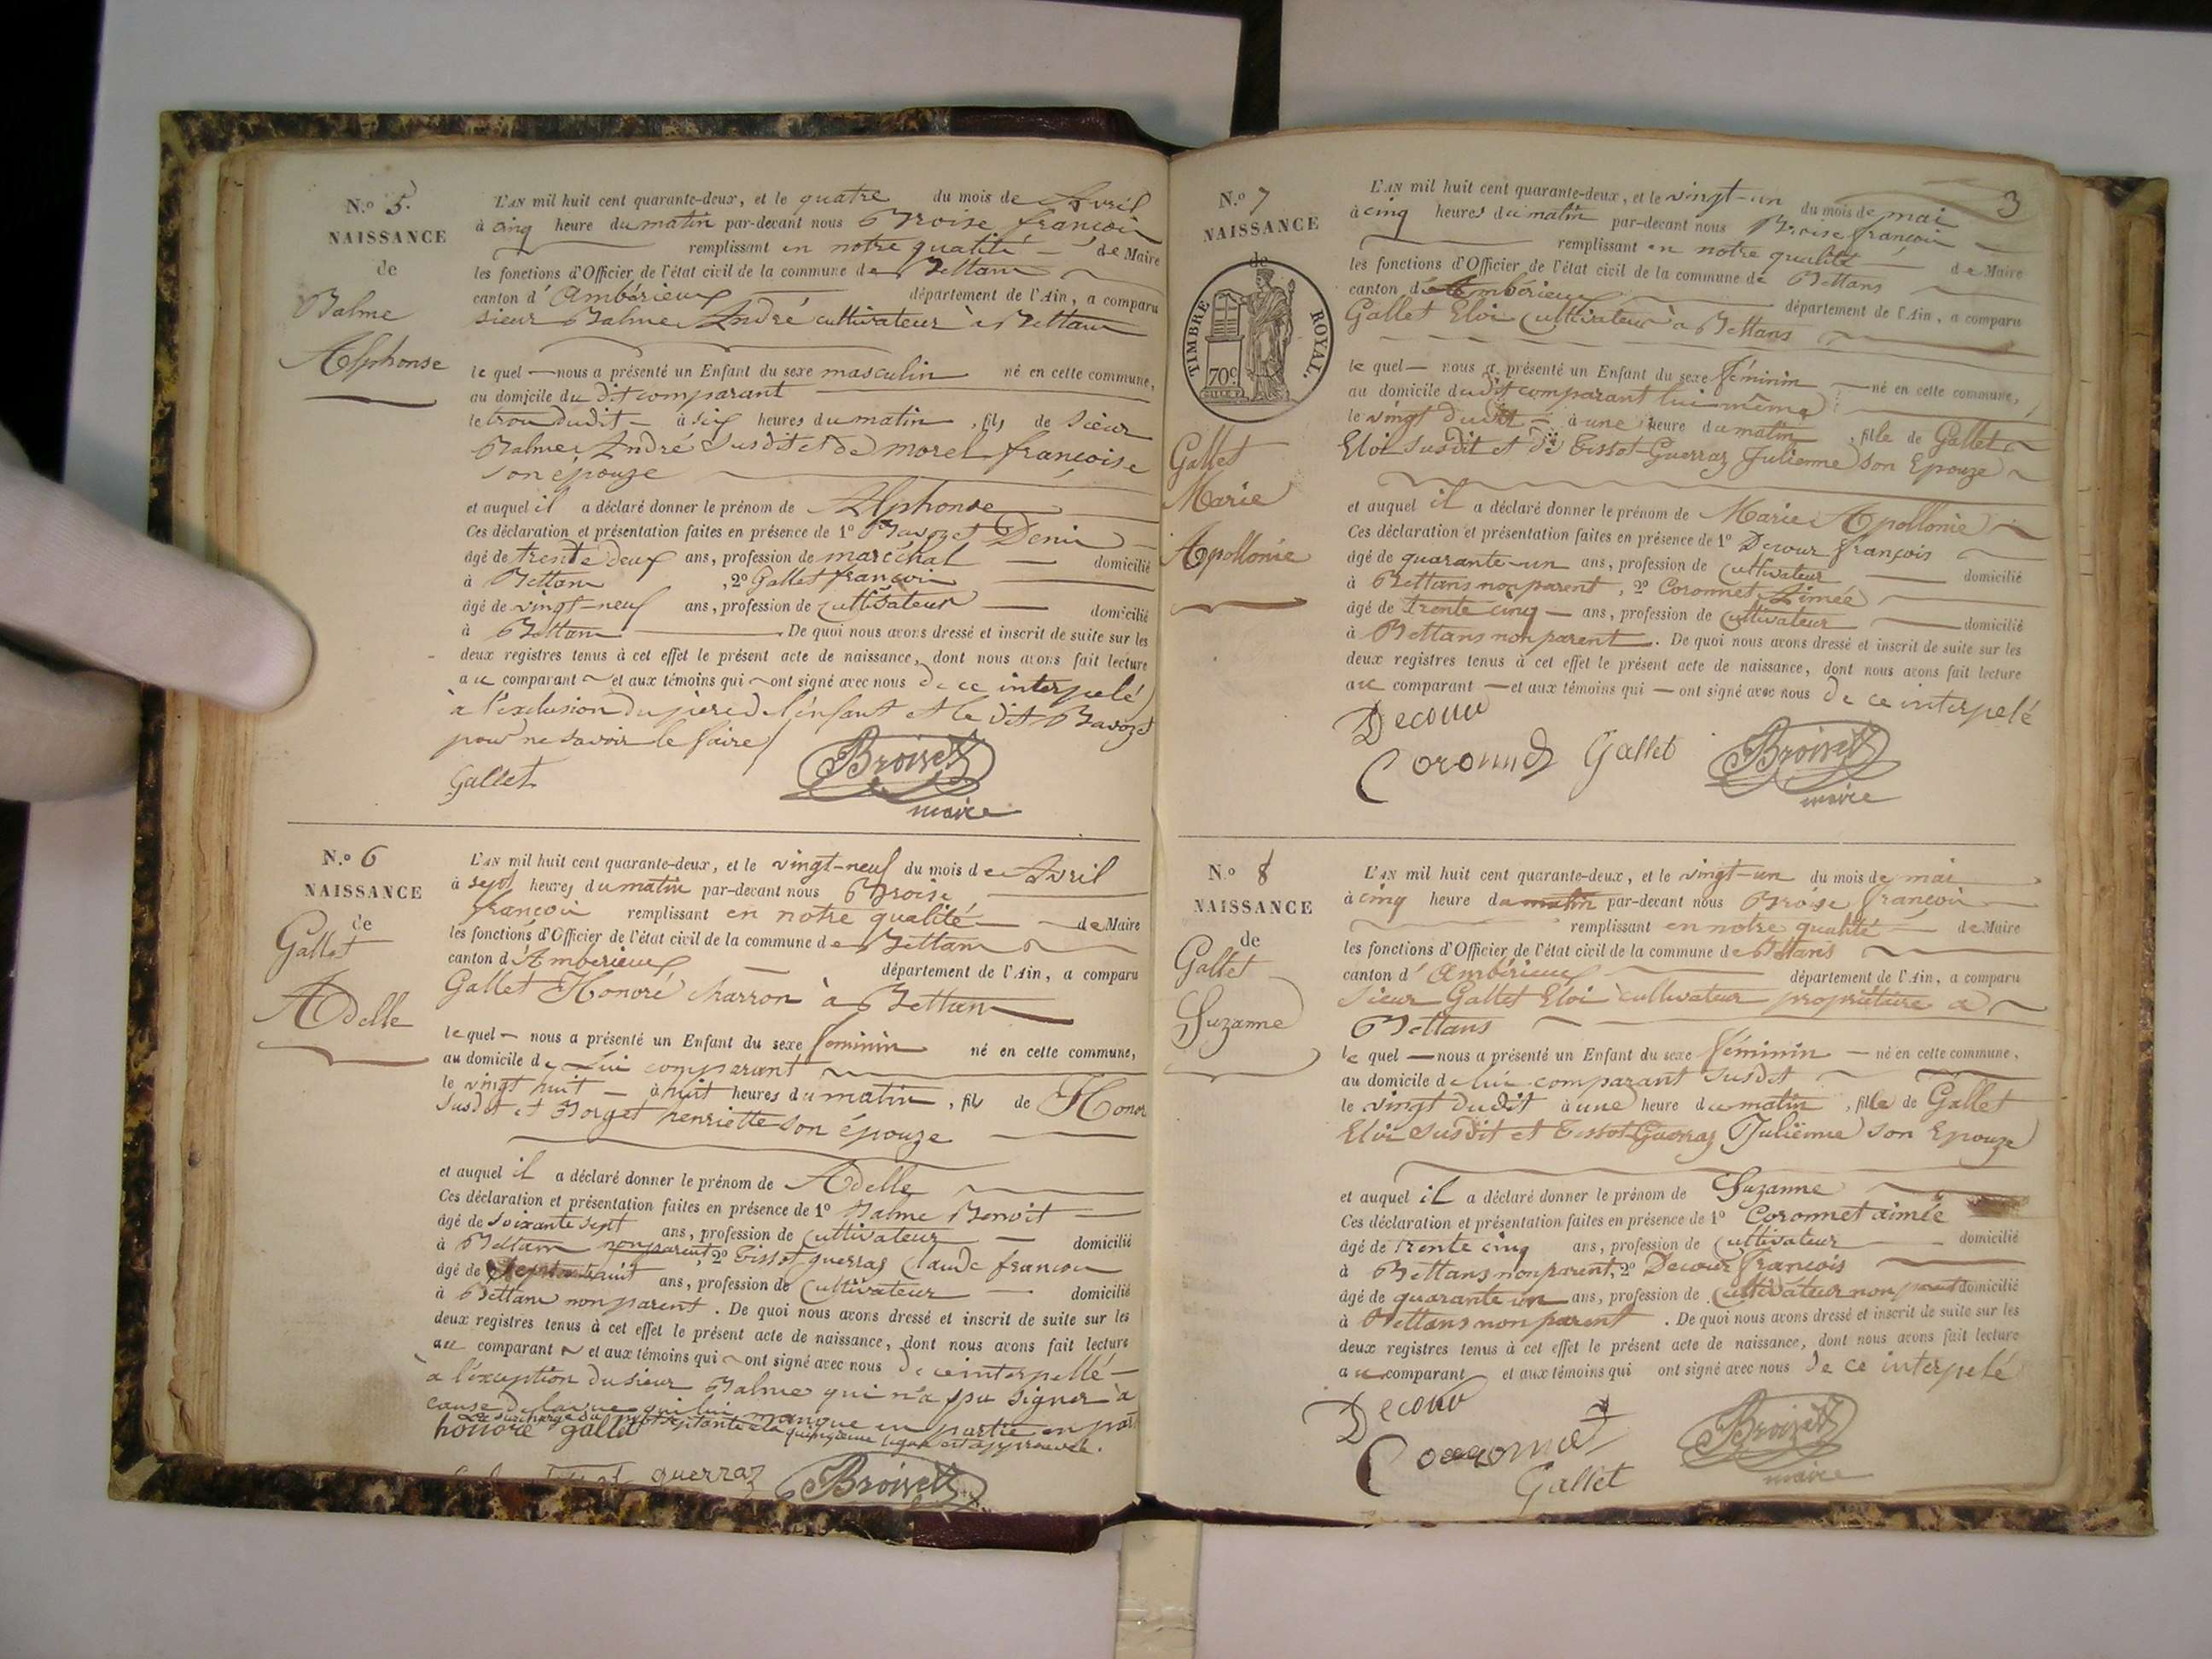 N.o 5.
NAISSANCE
de
Balme
Alphonse
L'AN mil huit cent quarante-deux, et le quatre du mois de Avril
à cinq heure du matin par-devant nous Broise françois
remplissant en notre qualité de Maire
les fonctions d'Officier de l'état civil de la commune de Bettans
canton d' Ambérieux département de l'Ain, a comparu
sieur Balme André cultivateur à Bettans
le quel nous a présenté un Enfant du sexe masculin né en cette commune,
au domicile du dit comparant
le trois dudit à six heures du matin, fils de sieur
Balme André susdit et de morel françoise
son épouze
et auquel il a déclaré donner le prénom de Alphonse
Ces déclaration et présentation faites en présence de 1o Bavozet Denis
âgé de trente deux ans, profession de maréchal domicilié
à Bettans, 2o Gallet françois
âgé de vingt-neuf ans, profession de cultivateur domicilié
à Bettans De quoi nous avons dressé et inscrit de suite sur les
deux registres tenus à cet effet le présent acte de naissance, dont nous avons fait lecture
au comparant et aux témoins qui ont signé avec nous de ce interpelé
à l'exclusion du père de l'enfant et le dit Bavozet
pour ne savoir le faire
Gallet Broiset
maire
N.o 6
NAISSANCE
de
Gallet
Adelle
L'AN mil huit cent quarante-deux, et le vingt-neuf du mois de Avril
à sept heures du matin par-devant nous Broise
françois remplissant en notre qualité de Maire
les fonctions d'Officier de l'état civil de la commune de Bettans
canton d'Amberieux département de l'Ain, a comparu
Gallet Honoré charron à Bettans
le quel nous a présenté un Enfant du sexe féminin né en cette commune,
au domicile de Lui comparant
le vingt huit à huit heures du matin, fil de Honor
susdit et Borget henriette son épouze
et auquel il a déclaré donner le prénom de Adelle
Ces déclaration et présentation faites en présence de 1o Balme Benoit
âgé de soixante sept ans, profession de cultivateur domicilié
à Bettans non parent, 2o Tissot-guerraz Claude francois
âgé de ans, profession de Cultivateur domicilié
à Bettans non parent. De quoi nous avons dressé et inscrit de suite sur les
deux registres tenus à cet effet le présent acte de naissance, dont nous avons fait lecture
au comparant et aux témoins qui ont signé avec nous de ce interpellé
à l'exception du sieur Balme qui n'a pu signer à
cause de la vue qui lui manque en partie en
La surcharge du mot septante à la quinzieme ligne est approuvée.
honoré gallet
guerraz Broiset
3
N.o 7
NAISSANCE
de
TIMBRE ROYAL.
70c
Gallet
Marie
Apollonie
L'AN mil huit cent quarante-deux, et le vingt-un du mois de mai
à cinq heures du matin par-devant nous Broise françois
remplissant en notre qualité de Maire
les fonctions d'Officier de l'état civil de la commune de Bettans
canton d'Ambérieux département de l'Ain, a comparu
Gallet Eloi Cultivateur à Bettans
le quel nous a présenté un Enfant du sexe féminin né en cette commune,
au domicile dudit comparant lui même
le vingt dudit à une heure du matin, fille de Gallet
Eloi susdit et de Tissot-Guerraz Julienne son Epouze
et auquel il a déclaré donner le prénom de Marie Apollonie
Ces déclaration et présentation faites en présence de 1o Decour françois
âgé de quarante-un ans, profession de Cultivateur domicilié
à Bettans non parent, 2o Coronnet Aimée
âgé de trente cinq ans, profession de Cultivateur domicilié
à Bettans non parent. De quoi nous avons dressé et inscrit de suite sur les
deux registres tenus à cet effet le présent acte de naissance, dont nous avons fait lecture
au comparant et aux témoins qui ont signé avec nous de ce interpelé
Decour
Gallet Broiset
maire
N.o 8
NAISSANCE
de
Gallet
Suzanne
L'AN mil huit cent quarante-deux, et le vingt-un du mois de mai
à cinq heure du matin par-devant nous Broise françois
remplissant en notre qualité de Maire
les fonctions d'Officier de l'état civil de la commune de Bettans
canton d' Ambérieux département de l'Ain, a comparu
sieur Gallet Eloi cultivateur propriétaire a
Bettans
le quel nous a présenté un Enfant du sexe féminin né en cette commune,
au domicile de lui comparant susdit
le vingt dudit à une heure du matin, fille de Gallet
Eloi susdit et Tissot-Guerraz Julienne son Epouze
et auquel il a déclaré donner le prénom de Suzanne
Ces déclaration et présentation faites en présence de 1o Coronnet aimée
âgé de trente cinq ans, profession de Cultivateur domicilié
à Bettans non parent, 2o Decour François
âgé de quarante un ans, profession de Cultivateur non parent domicilié
à Bettans non parent. De quoi nous avons dressé et inscrit de suite sur les
deux registres tenus à cet effet le présent acte de naissance, dont nous avons fait lecture
au comparant et aux témoins qui ont signé avec nous de ce interpelé
Decour
Gallet Broiset
maire